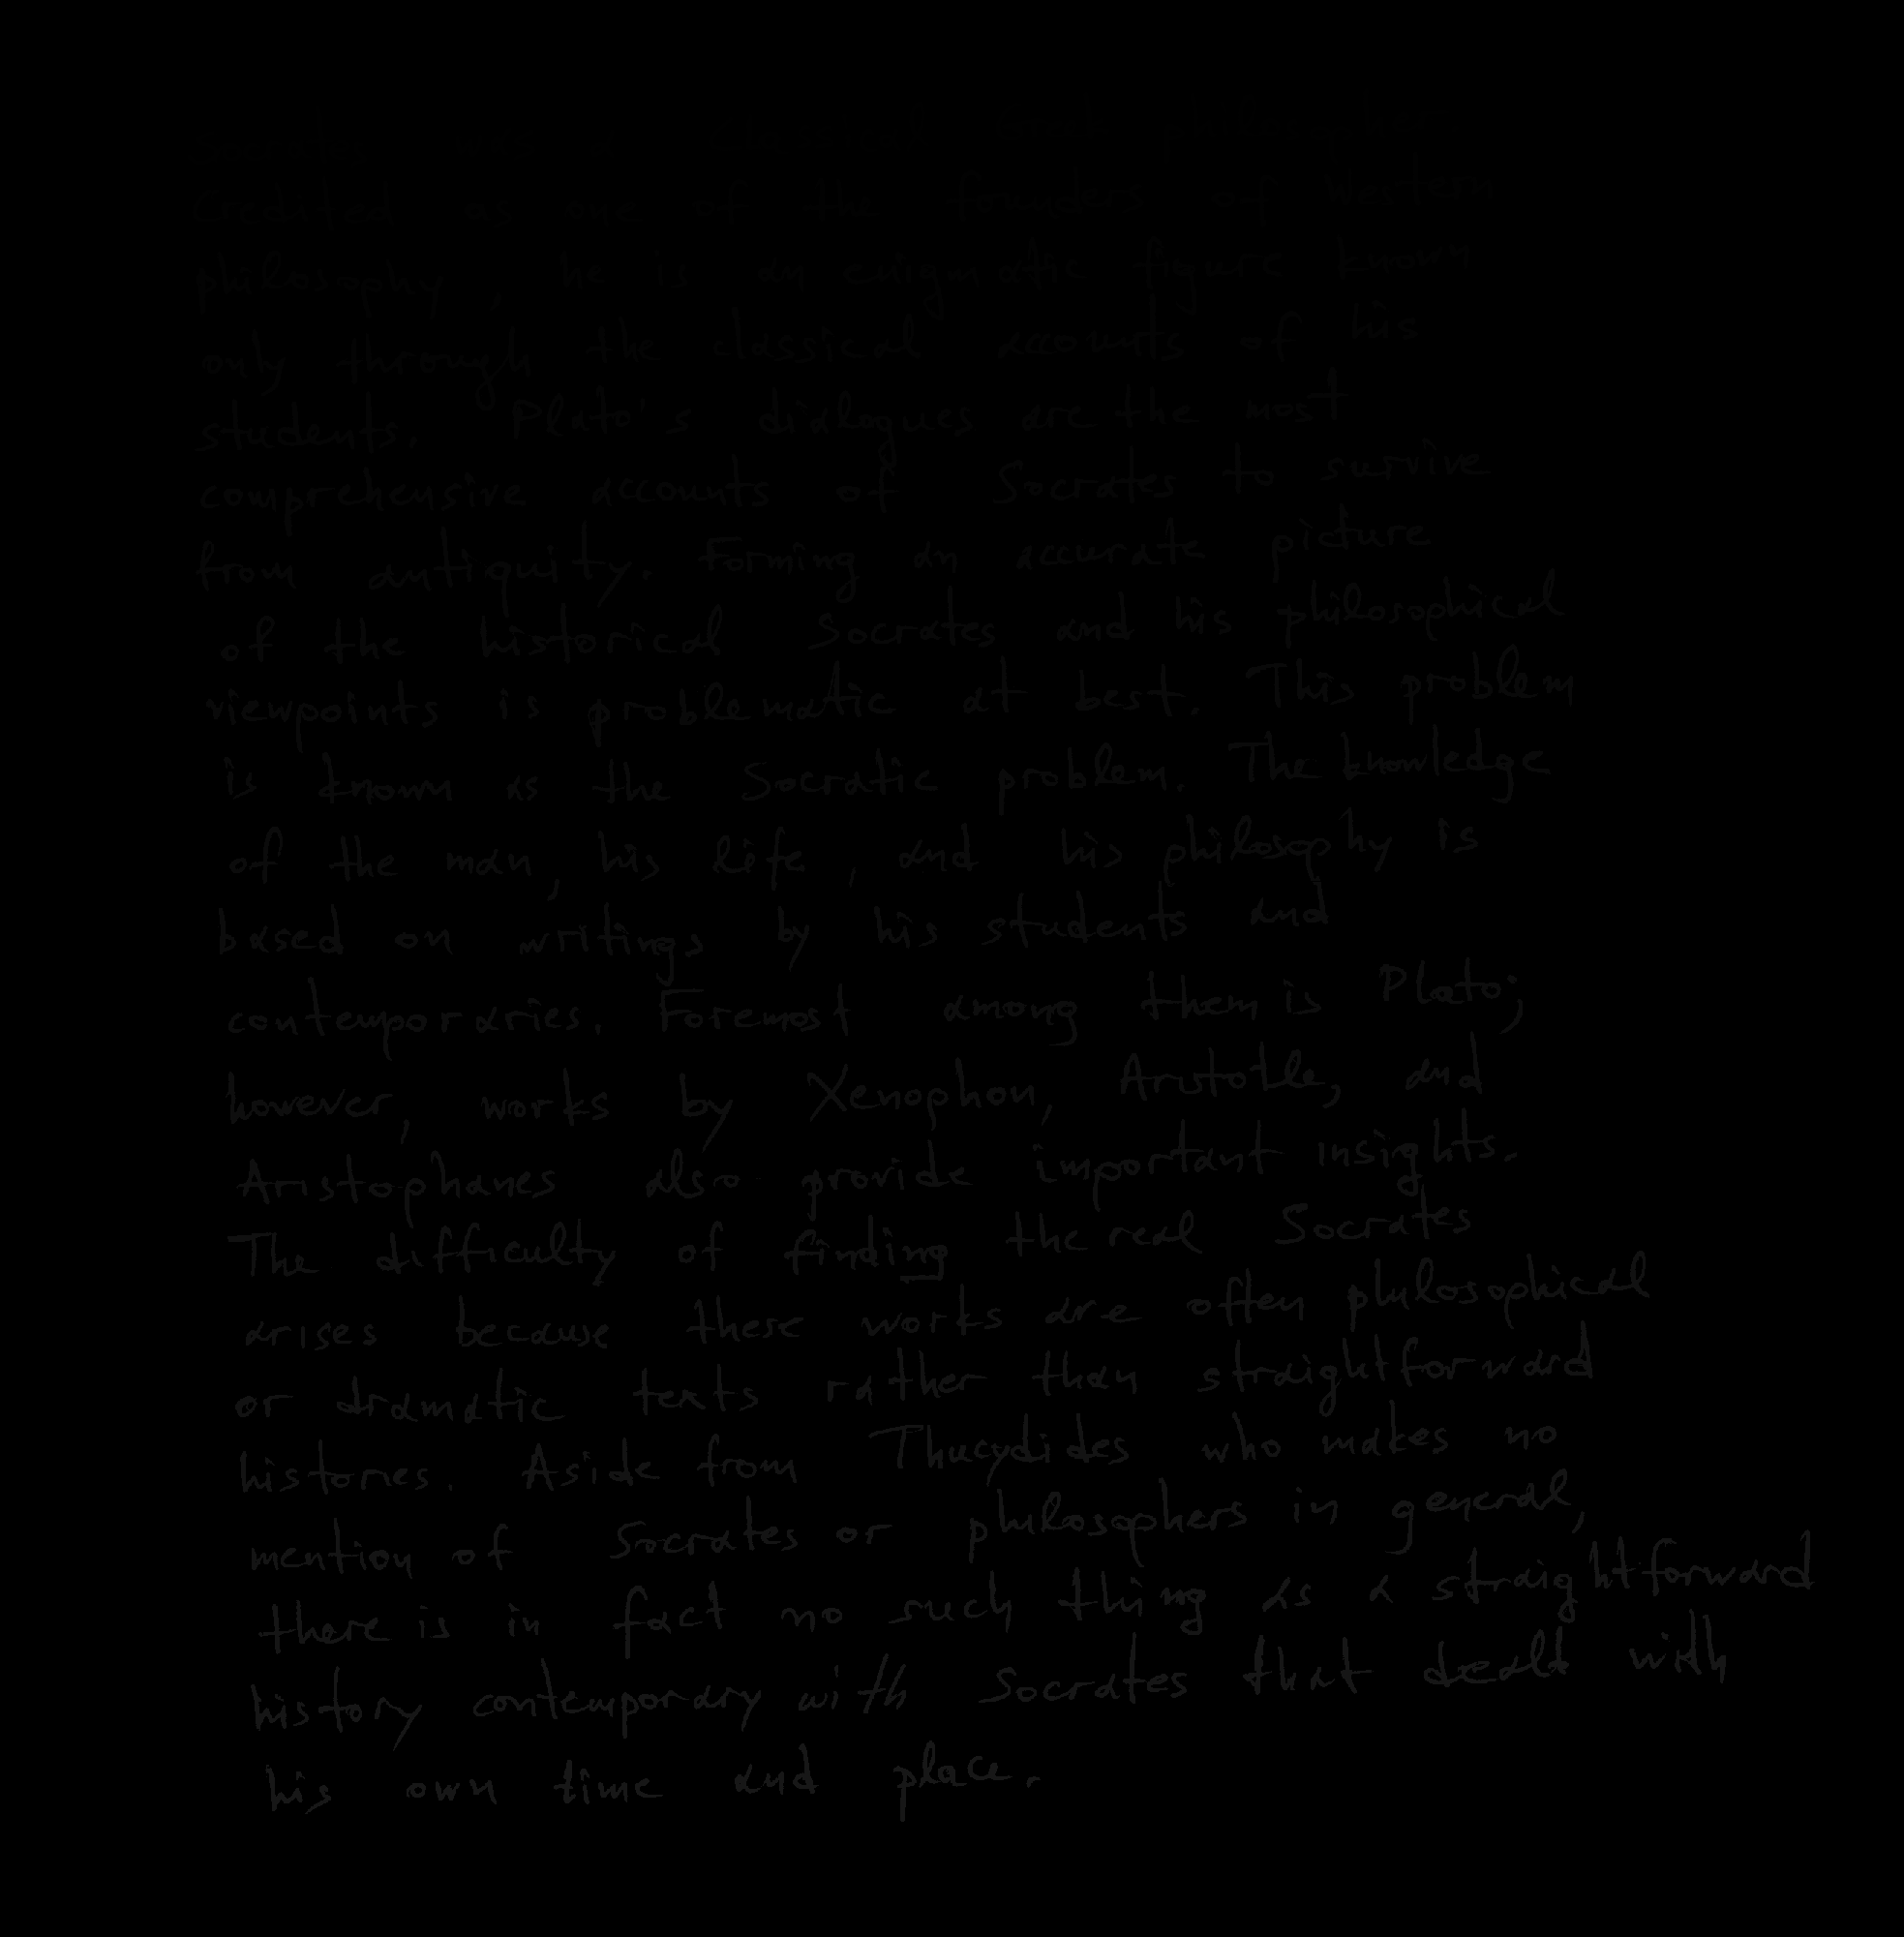 Credited as one of the founders of Western
philosophy, he is an enigmatic figure known
only through the classical accounts of his
students. Plato's dialogues are the most
comprehensive accounts of Socrates to survive
from antiquity. Forming an accurate picture
of the historical Socrates and his philosophical
viewpoints is problematic at best. This problem
is known as the Socratic problem. The knowledge
of the man, his life, and his philosophy is
based on writings by his students and
contemporaries. Foremost among them is Plato;
however, works by Xenophon, Aristotle, and
Aristophanes also provide important insights.
The difficulty of finding the real Socrates
arises because these works are often philosophical
or dramatic texts rather than straightforward
histories. Aside from Thucydides who makes no
mention of Socrates or philosophers in general,
there is in fact no such thing as a straightforward
history contemporary with Socrates that dealt with
his own time and place.